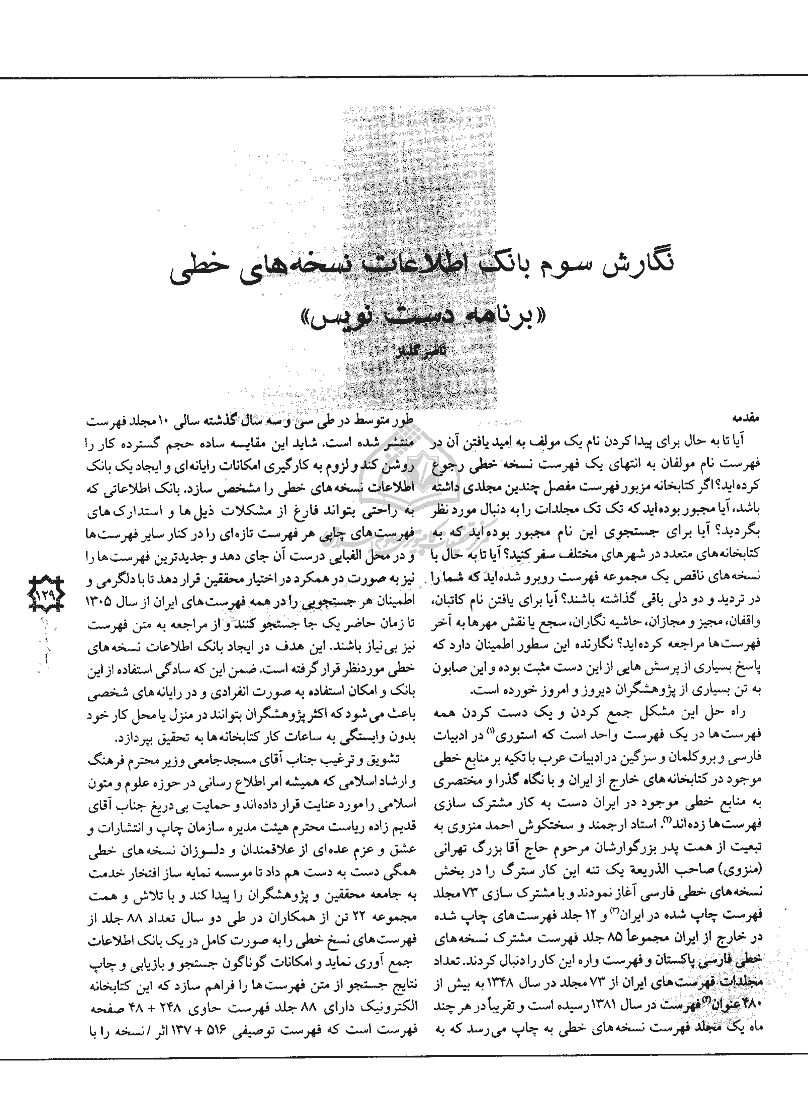 نگارش سوم بانک اطلاعات نسخه‌های خطی
«برنامه دست نویس»
مقدمه
آیا تا به حال برای پیدا کردن نام یک مولف به امید یافتن آن در
فهرست نام مولفان به انتهای یک فهرست نسخه خطی رجوع
کرده‌اید؟ اگر کتابخانه مزبور فهرست مفصل چندین مجلدی داشته
باشد، آیا مجبور بوده‌اید که تک تک مجلدات را به دنبال مورد نظر
بگردید؟ آیا برای جستجوی این نام مجبور بوده‌اید که به
کتابخانه‌های متعدد در شهرهای مختلف سفر کنید؟ آیا تا به حال با
نسخه‌های ناقص یک مجموعه فهرست روبرو شده‌اید که شما را
در تردید و دو دلی باقی گذاشته باشند؟ آیا برای یافتن نام کاتبان،
واقفان، مجیز و مجازان، حاشیه نگاران، سجع یا نقش مهرها به آخر
فهرست‌ها مراجعه کرده‌اید؟ نگارنده این سطور اطمینان دارد که
پاسخ بسیاری از پرسش هایی از این دست مثبت بوده و این صابون
به تن بسیاری از پژوهشگران دیروز و امروز خورده است.
راه حل این مشکل جمع کردن و یک دست کردن همه
فهرست‌ها در یک فهرست واحد است که استوری(۱) در ادبیات
فارسی و بروکلمان و سزگین در ادبیات عرب با تکیه بر منابع خطی
موجود در کتابخانه‌های خارج از ایران و با نگاه گذرا و مختصری
به منابع خطی موجود در ایران دست به کار مشترک سازی
فهرست‌ها زده‌اند(۲). استاد ارجمند و سختکوش احمد منزوی به
تبعیت از همت پدر بزرگوارشان مرحوم حاج آقا بزرگ تهرانی
(منزوی) صاحب الذریعة یک تنه این کار سترگ را در بخش
نسخه‌های خطی فارسی آغاز نمودند و با مشترک سازی ۷۳ مجلد
فهرست چاپ شده در ایران(۳) و ۱۲ جلد فهرست‌های چاپ شده
در خارج از ایران مجموعاً ۸۵ جلد فهرست مشترک نسخه‌های
خطی فارسی پاکستان و فهرست واره این کار را دنبال کردند. تعداد
مجلدات فهرست‌های ایران از ۷۳ مجلد در سال ۱۳۴۸ به بیش از
۴۸۰ عنوان(۴) فهرست در سال ۱۳۸۱ رسیده است و تقریباً در هر چند
ماه یک مجلد فهرست نسخه‌های خطی به چاپ می‌رسد که به
طور متوسط در طی سی و سه سال گذشته سالی ۱۰ مجلد فهرست
منتشر شده است. شاید این مقایسه ساده حجم گسترده کار را
روشن کند و لزوم به کارگیری امکانات رایانه‌ای و ایجاد یک بانک
اطلاعات نسخه‌های خطی را مشخص سازد. بانک اطلاعاتی که
به راحتی بتواند فارغ از مشکلات ذیل‌ها و استدارک‌های
فهرست‌های چاپی هر فهرست تازه‌ای را در کنار سایر فهرست‌ها
و در محل الفبایی درست آن جای دهد و جدیدترین فهرست‌ها را
نیز به صورت در همکرد در اختیار محققین قرار دهد تا با دلگرمی و
اطمینان هر جستجویی را در همه فهرست‌های ایران از سال ۱۳۰۵
تا زمان حاضر یک جا جستجو کنند و از مراجعه به متن فهرست
نیز بی‌نیاز باشند. این هدف در ایجاد بانک اطلاعات نسخه‌های
خطی موردنظر قرار گرفته است. ضمن این که سادگی استفاده از این
بانک و امکان استفاده به صورت انفرادی و در رایانه‌های شخصی
باعث می‌شود که اکثر پژوهشگران بتوانند در منزل یا محل کار خود
بدون وابستگی به ساعات کار کتابخانه‌ها به تحقیق بپردازد.
تشویق و ترغیب جناب آقای مسجدجامعی وزیر محترم فرهنگ
و ارشاد اسلامی که همیشه امر اطلاع رسانی در حوزه علوم و متون
اسلامی را مورد عنایت قرار داده‌اند و حمایت بی‌دریغ جناب آقای
قدیم زاده ریاست محترم هیئت مدیره سازمان چاپ و انتشارات و
عشق و عزم عده‌ای از علاقمندان و دلسوزان نسخه‌های خطی
همگی دست به دست هم داد تا موسسه نمایه ساز افتخار خدمت
به جامعه محققین و پژوهشگران را پیدا کند و با تلاش و همت
مجموعه ۲۲ تن از همکاران در طی دو سال تعداد ۸۸ جلد از
فهرست‌های نسخ خطی را به صورت کامل در یک بانک اطلاعات
جمع آوری نماید و امکانات گوناگون جستجو و بازیابی و چاپ
نتایج جستجو از متن فهرست‌ها را فراهم سازد که این کتابخانه
الکترونیک دارای ۸۸ جلد فهرست حاوی ۲۴۸ + ۴۸ صفحه
فهرست است که فهرست توصیفی ۵۱۶ + ۱۳۷ اثر / نسخه را با
۱۲۹